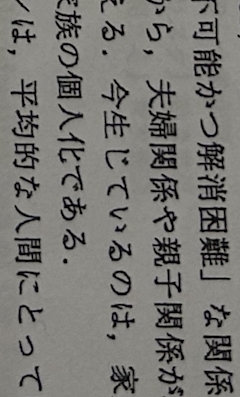 不可能かつ解消困難」な関係
から，夫婦関係や親子関係が
える．今生じているのは，家
族の個人化である．
は，平均的な人間にとって